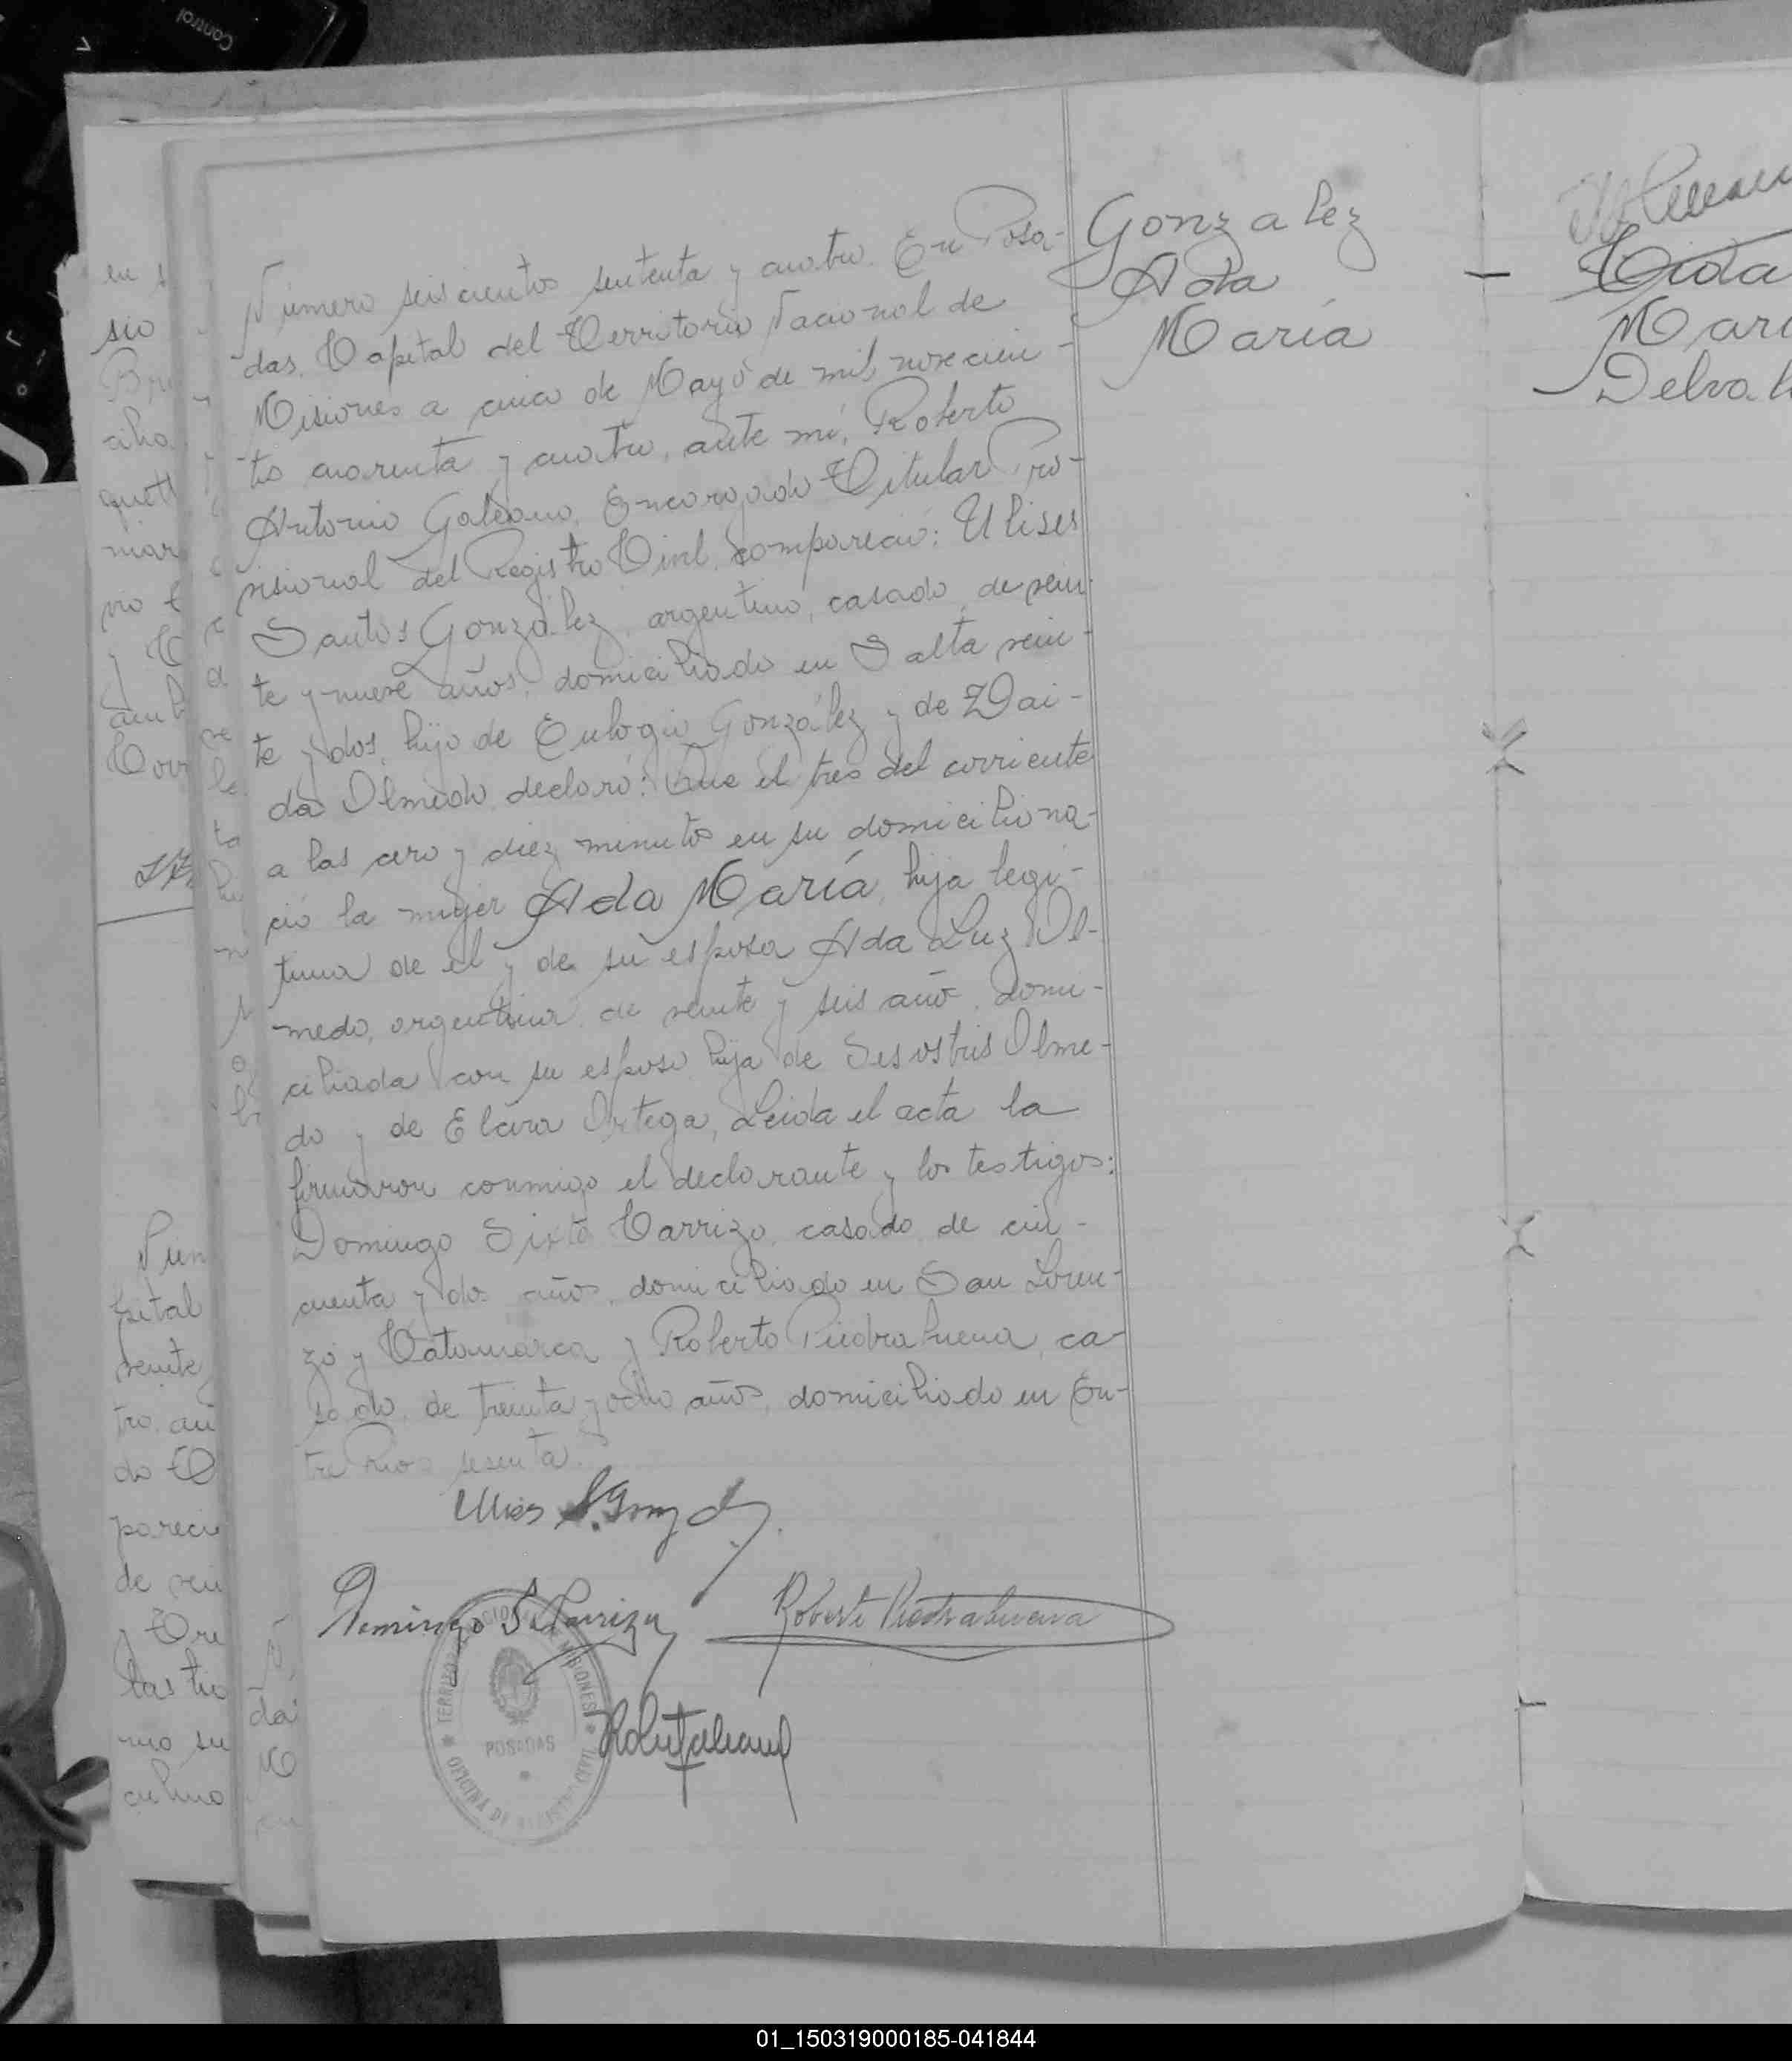 Control
Número seiscientos setenta y cuatro. En Posa-
das, Capital del Territorio Nacional de
Misiones a cinco de Mayo de mil novecien-
tos cuarenta y cuatro, ante mí, Roberto
Antonio Galeano, Encargado Titular Pro-
visional del Registro Civil, compareció: Ulises
Santos González, argentino, casado, de vein-
te y nueve años, domiciliado en Salta vein-
te y dos, hijo de Eulogio González y de Zai-
da Olmedo, declaró: Que el tres del corriente
a las cero y diez minutos en su domicilio na-
ció la mujer Ada María, hija legí-
tima de el y de su esposa Ada Luz Ol-
medo, argentina, de veinte y seis años, domi-
ciliada con su esposo, hija de Sesostris Olme-
do y de Elvira Ortega, Leida el acta la
firmaron conmigo el declarante y los testigos:
Domingo Sixto Carrizo, casado, de cin-
cuenta y dos años, domiciliado en San Loren-
zo y Catamarca y Roberto Piedrabuena, ca-
sado, de treinta y ocho años, domiciliado en En-
tre Rios sesenta.
Gonzalez
Ada
María
Domingo S. Carrizo
Roberto Piedrabuena
TERRITORIO NACIONAL DE MISIONES
POSADAS
OFICINA DE REGISTRO CIVIL
en
sio
mar
pital
veinte
do
de vein
las tre
mo su
da
Mari
Delva
01_150319000185-041844